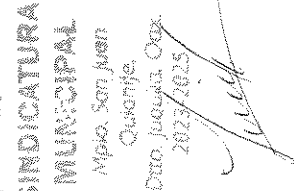 SINDICATURA
MUNICIPAL
Mpio. San Juan
Quiahije,
Dtto. Juquila, Oax.
2023-2025